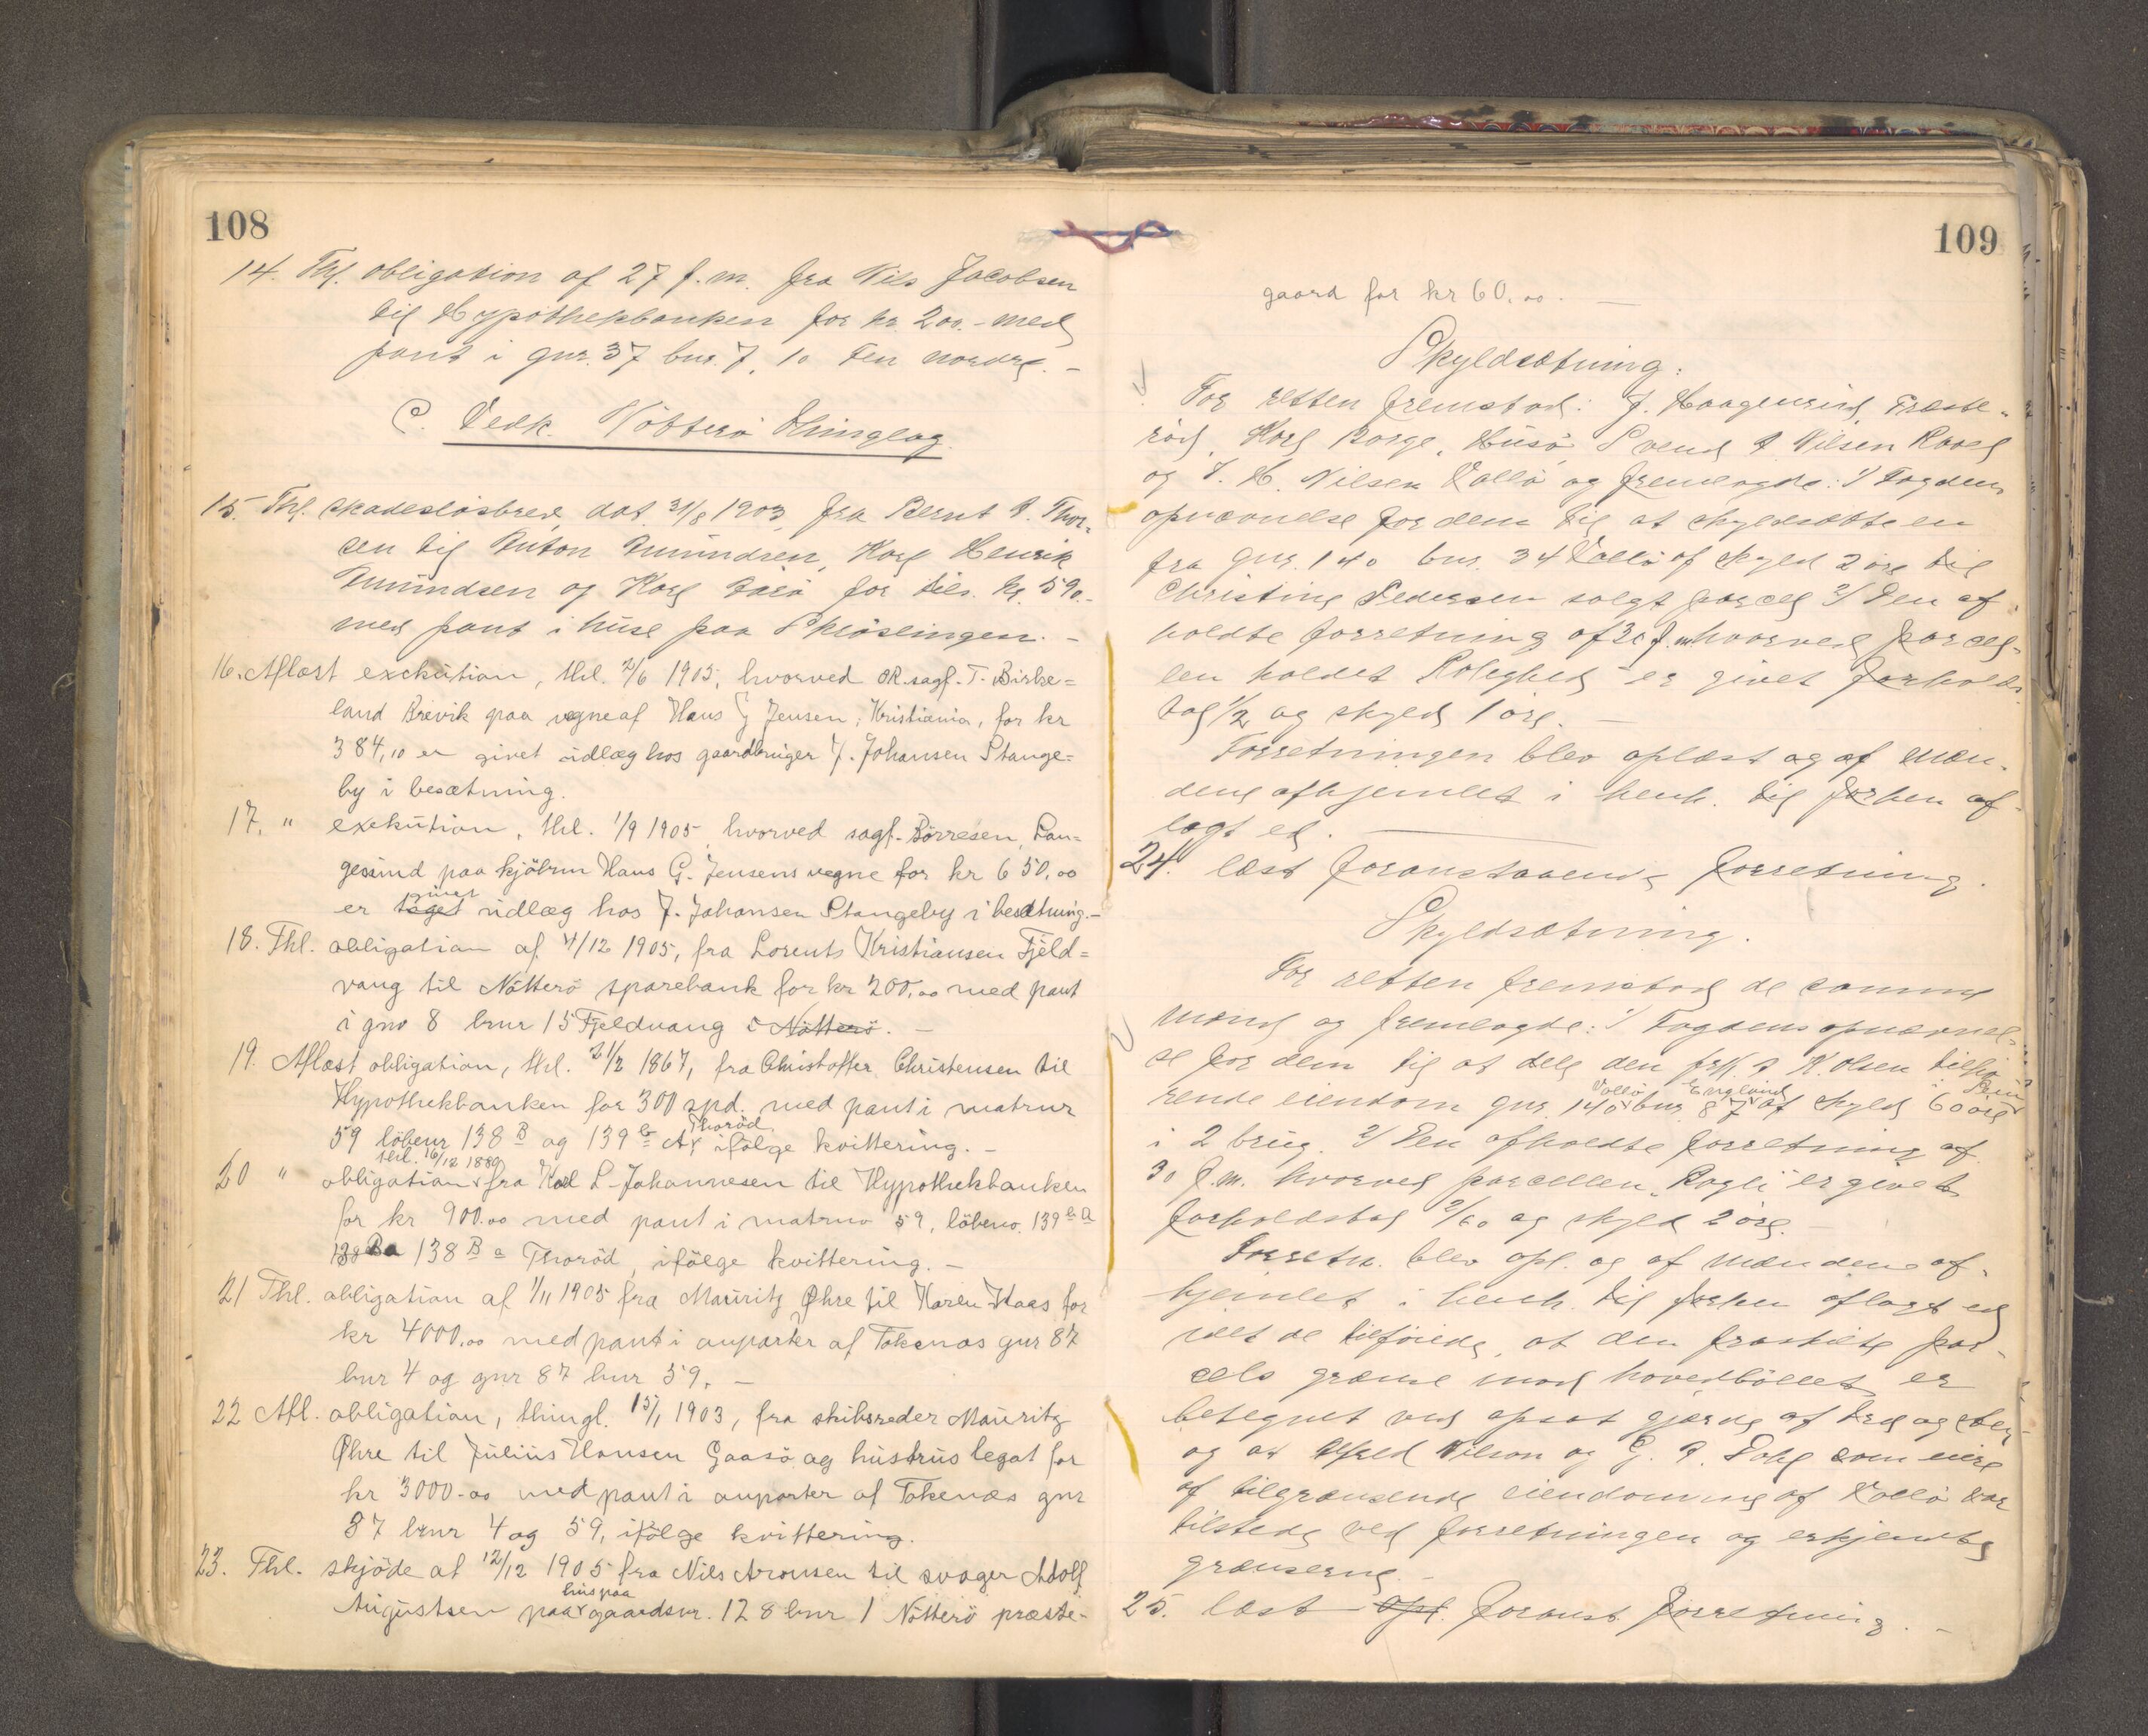 108
14. Thl. obligation af 27 f.m. fra Nils Jacobsen
til Hypothekbanken for kr 200.- med
pant i gnr. 37 bnr. 7, 10 Fen nordre. -
C. Vedk. Nötterö Thinglag.
15. Thl. skadeslösbrev, dat. 31/8 1903, fra Bernt A. Thor-
sen til Anton Amundsen, Karl Henrik
Amundsen og Karl for tils. kr. 590.-
med pant i huse paa Skröslingen. -
16. Aflæst exekution, thl. 2/6 1905, hvorved OR.sagf. T. Birke=
land Brevik paa vegne af Hans G Jensen, Kristiania, for kr
384,10 er givet udlæg hos gaardbruger J. Johansen Stange=
by i besætning.
17. " exekution, thl. 1/9 1905, hvorved sagf. Börresen, Lan=
gesund paa kjöbm Hans G. Jensens vegne for kr 650,00
givet
er taget udlæg hos J. Johansen Stangeby i besætning. -
18. Thl. obligation af 4/12 1905, fra Lorents Kristiansen Fjeld=
vang til Nötterö sparebank for kr 200,00 med pant
i gno 8 bnr 15 Fjeldvang i Nötterö. -
19. Aflæst obligation, thl. 21/2 1867, fra Christoffer Christensen til
Hypothekbanken for 300 spd. med pant i matrnr
Thoröd
59 löbenr 138 B og 139 b A ifölge kvittering. -
thl. 16/12 1889
20 " obligation fra Karl L. Johannesen til Hypothekbanken
for kr 900.00 med pant i matrno 59, löbeno. 139 b a
138 Ba 138 B a Thoröd, ifölge kvittering. -
21 Thl. obligation af 1/11 1905 fra Mauritz Øhre til Karen Haas for
kr 4000.00 med pant i anparter af Tokenæs gnr 87
bnr 4 og gnr 87 bnr 59. -
22 Afl. obligation, thingl. 15/1 1903, fra skibsreder Mauritz
Øhre til Julius Hansen Gaasö og hustrus legat for
kr 3000.00 med pant i anparter af Tokenæs gnr
87 bnr 4 og 59, ifölge kvittering.
23. Thl. skjöde af 12/12 1905 fra Nils Aronsen til svoger Adolf
hus paa
Augustsen paa gaardsnr. 128 bnr 1 Nötterö præste-
109
gaard for kr 60.00. -
Skyldsætning.
For retten fremstod: J. Haagensen, Træste-
röd, Karl Borge, Husö, Svend A Nilsen Raael
og J. H. Nilsen Vallö og fremlagde: 1/ Fogdens
opnævnelse for dem til at skyldsætte en
fra gnr. 140 bnr. 34 Vallö af skyld 2 öre til
Christine Pedersen solgt parcel 2/ Den af-
holdte forretning af 30 f.m. hvorved parcel-
len kaldet Rolighed er givet forholds
tal 1/2 og skyld 1 öre. -
Forretningen blev oplæst og af mæn-
dene afhjemlet i henh. til forhen af-
lagt ed. -
24. læst foranstaaende forretning.
Skyldsætning.
For retten fremstod de samme
mænd og fremlagde: 1/ Fogdens opnævnel-
se for dem til at dele den frk. A K. Olsen tilhö
Vallö Englund
rende eiendom gnr. 140 bnr. 87 af skyld 60 öre
i 2 brug. 2/ Den afholdte forretning af
30 f.m. hvorved parcellen „Rogli" er givet
forholdstal 2/60 og skyld 2 öre. -
Forretn. blev opl. og af mændene af-
hjemlet i henh. til forhen aflagt ed
idet de tilföiede, at den fraskilte par-
cels grænse mod hovedböllet er
betegnet ved opsat gjærde af træ og sten
og at Alfred Nilson og G. A. Dahl som eiere
af tilgrænsende eiendomme af Vallö var
tilstede ved forretningen og erkjendte
grænserne. -
25. læst opl. foranst. forretning. -